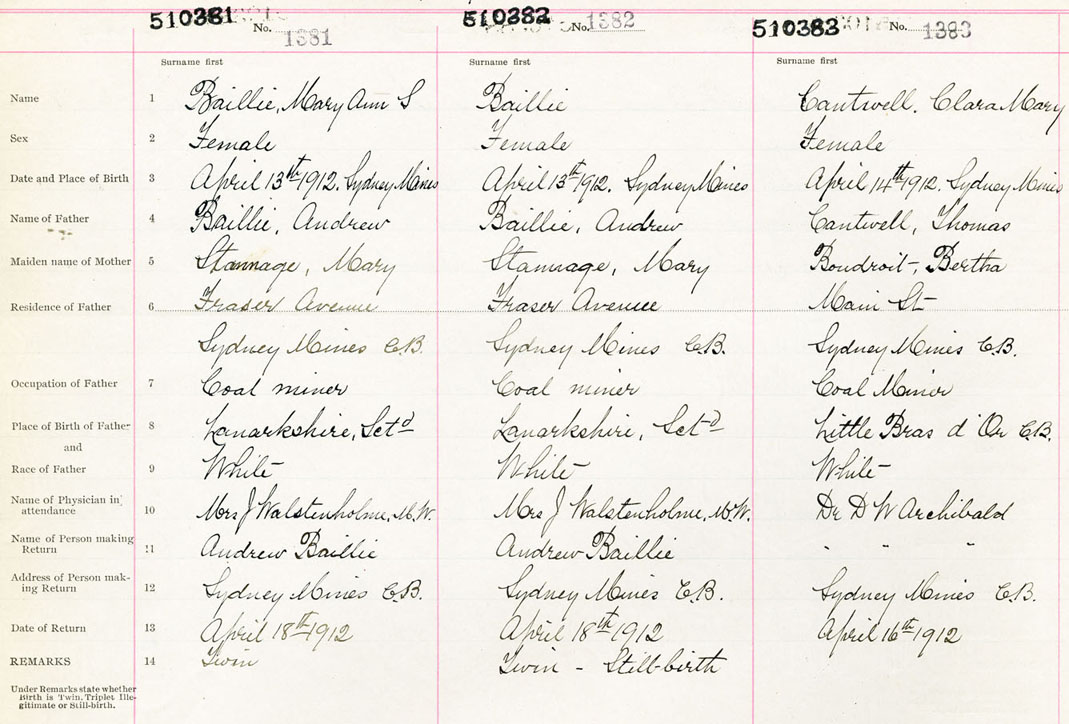 510381 No. 1381 510382 No. 1382 510383 No. 1383
Surname first Surname first Surname first
Name 1 Baillie, Mary Ann S Baillie Cantwell, Clara Mary
Sex 2 Female Female Female
Date and Place of Birth 3 April 13th 1912, Sydney Mines April 13th 1912. Sydney Mines April 14th 1912, Sydney Mines
Name of Father 4 Baillie, Andrew Baillie, Andrew Cantwell, Thomas
Maiden name of Mother 5 Stannage, Mary Stannage, Mary Boudroit, Bertha
Residence of Father 6 Fraser Avenue Fraser Avenue Main St
Sydney Mines C.B. Sydney Mines C.B. Sydney Mines C.B.
Occupation of Father 7 Coal miner Coal miner Coal Miner
Place of Birth of Father 8 Lanarkshire, Sctd Lanarkshire, Sctd Little Bras d'Or C.B.
and
Race of Father 9 White White White
Name of Physician in
attendance 10 Mrs J Walstenholme, M.W. Mrs J Walstenholme, M.W. Dr D W Archibald
Name of Person making
Return 11 Andrew Baillie Andrew Baillie " " "
Address of Person mak-
ing Return 12 Sydney Mines C.B. Sydney Mines C.B. Sydney Mines C.B.
Date of Return 13 April 18th 1912 April 18th 1912 April 16th 1912
REMARKS 14 Twin Twin - Still-birth
Under Remarks state whether
Birth is Twin, Triplet Ille-
gitimate or Still-birth.